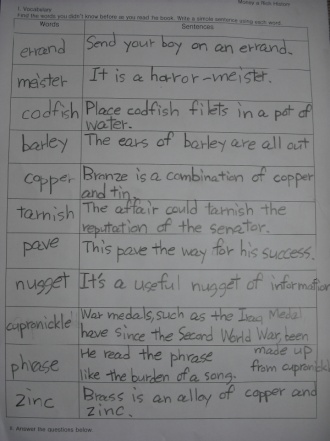 Money a Rich History
1. Vocabulary
Find the words you didn't know before as you read the book. Write a simple sentence using each word.
Words Sentences
errand Send your boy on an errand.
meister It is a horror-meister.
codfish Place codfish filets in a pot of
water.
barley The ears of barley are all out
copper Bronze is a combination of copper
and tin.
tarnish The affair could tarnish the
reputation of the senator.
pave This pave the way for his success.
nugget It's a useful nugget of information
cupronickle War medals, such as the Iraq Medal
have since the Second World War, been
made up
from cupronickle
phrase He read the phrase
like the burden of a song.
zinc Brass is an alloy of copper and
zinc.
Answer the questions below.